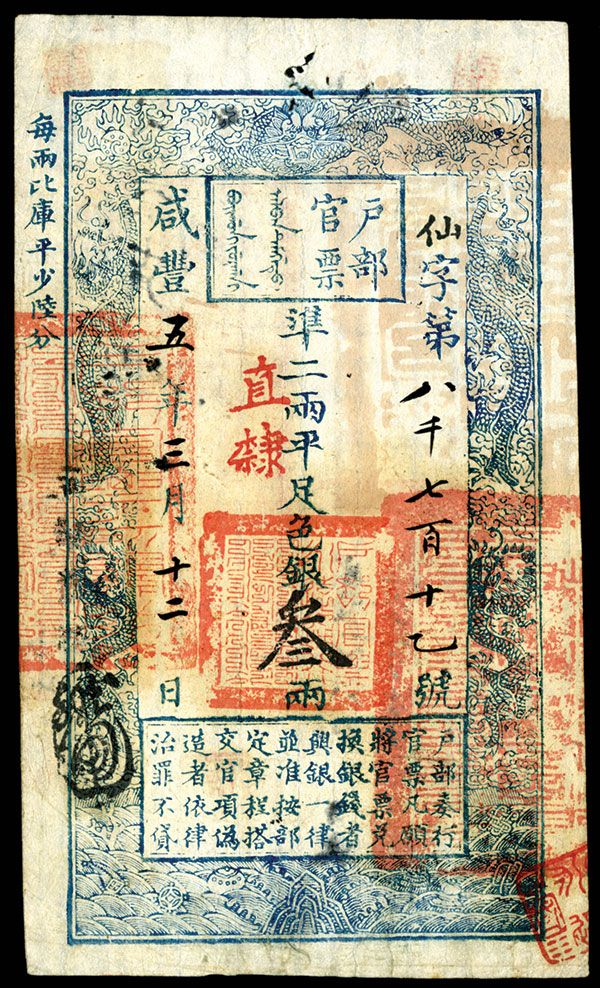 户部
官票
仙字第八千七百十乙號
準二兩平足色銀叁兩
直隸
咸豐五年三月十二日
户部奏行
官票凡願
將官票兑
換銀錢者
與銀一律
並准按部
定章程搭
交官項偽
造者依律
治罪不貸
每兩比庫平少陸分